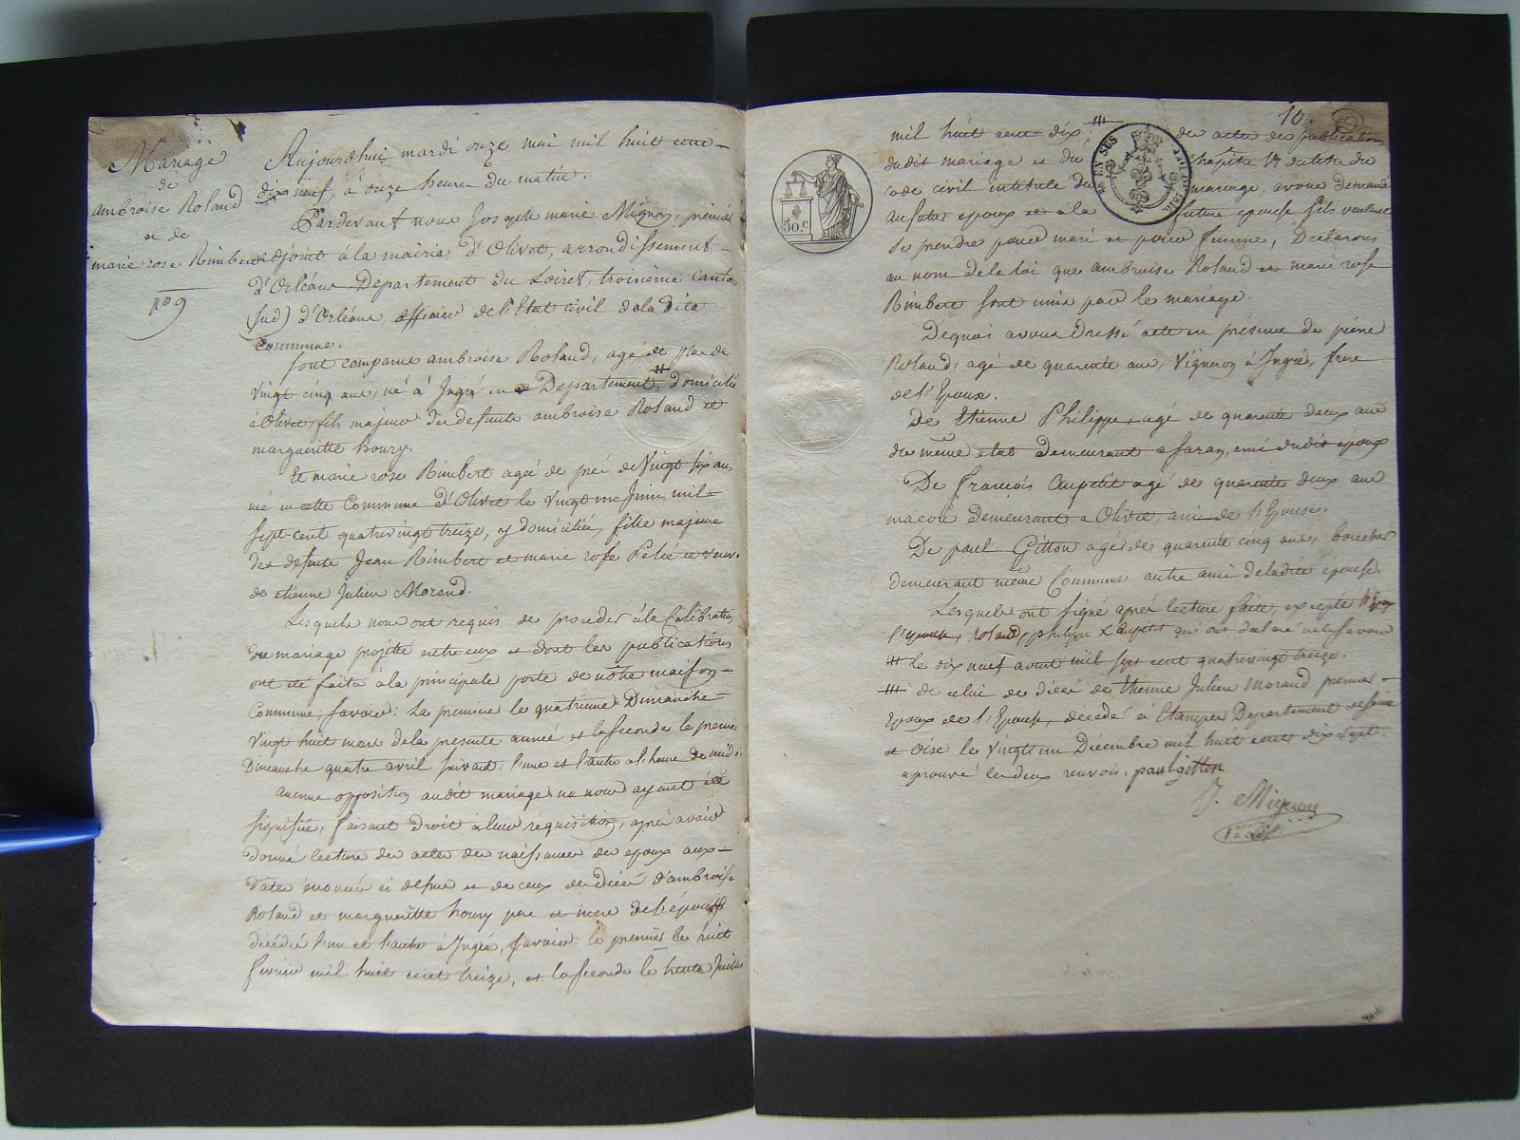 Mariage
de
ambroise Roland
et de
marie rose Rimbert
No 9
Aujourdhui mardi onze mai mil huit cent
dix neuf, à onze heures du matin.
Pardevant nous joseph marie Mignon, premier
adjoint à la mairie d'Olivet, arrondissement
d'Orléans Departement du Loiret, troisième Canton
(sud) d'Orléans, officier de l'Etat Civil de la dite
Commune.
sont comparus ambroise Roland, agé de plus de
vingt cinq ans, né à Ingré en ce Departement, # domicilié
à Olivet, fils majeur de defunts ambroise Roland et
margueritte houry.
Et marie rose Rimbert agée de près de Vingt six ans
née en cette Commune d'Olivet le vingt un Juin mil
sept cent quatrevingt treize, y domiciliée, fille majeure
des defunts Jean Rimbert et marie rose Pelé et veuve
de etienne Julien Morand.
Lesquels nous ont requis de proceder à la Célébration
du mariage projetté entre eux et dont les publications
ont été faites à la principale porte de notre maison
Commune, savoir: La premiere le quatrieme Dimanche
vingt huit mars de la presente année et la seconde le premier
Dimanche quatre avril suivant l'une et l'autre à l'heure de midi.
aucune opposition audit mariage ne nous ayant été
signifiée, faisant droit à leur requisition, après avoir
donné lecture des actes de naissances des epoux aux
dates énoncées ci dessus et de ceux de décès d'ambroise
Roland et margueritte houry pere et mere de l'époux
décédés l'un et l'autre à Ingré, savoir: le premier le huit
fevrier mil huit cent treize, et la seconde le trente Juillet
10
mil huit cent dix des actes des publications
dudit mariage et du chapitre 6 du titre du
Code civil intitulé du mariage, avons demandé
au futur epoux et à la future epouse s'ils veulent
se prendre pour mari et pour femme, Declarons
au nom de la loi que ambroise Roland et marie rose
Rimbert sont unis par le mariage.
50.c
EN SUS
Dequoi avons dressé acte en présence de pierre
Roland, agé de quarante ans, Vigneron à Ingré, frere
de l'Epoux.
De Etienne Philippe, agé de quarante deux ans
du même etat demeurant a Saran, ami dudit époux
De françois Aupetit agé de quarante deux ans
macon demeurant a Olivet, ami de l'Epouse.
De paul Gitton agé de quarante cinq ans, boucher
demeurant même Commune autre ami de ladite épouse.
Lesquels ont signé après lecture faite, excepté l'Epoux
l'epouse, Roland, philippe & Aupetit qui ont declaré ne le savoir
# le dix neuf avril mil sept cent quatrevingt treize.
de celui de décès de Etienne Julien Morand premier
Epoux de l'Epouse, décédé à Etampes Departement de Seine
et Oise le vingt un Décembre mil huit cent dix sept.
aprouvé les deux renvois. paul gitton
J. Mignon